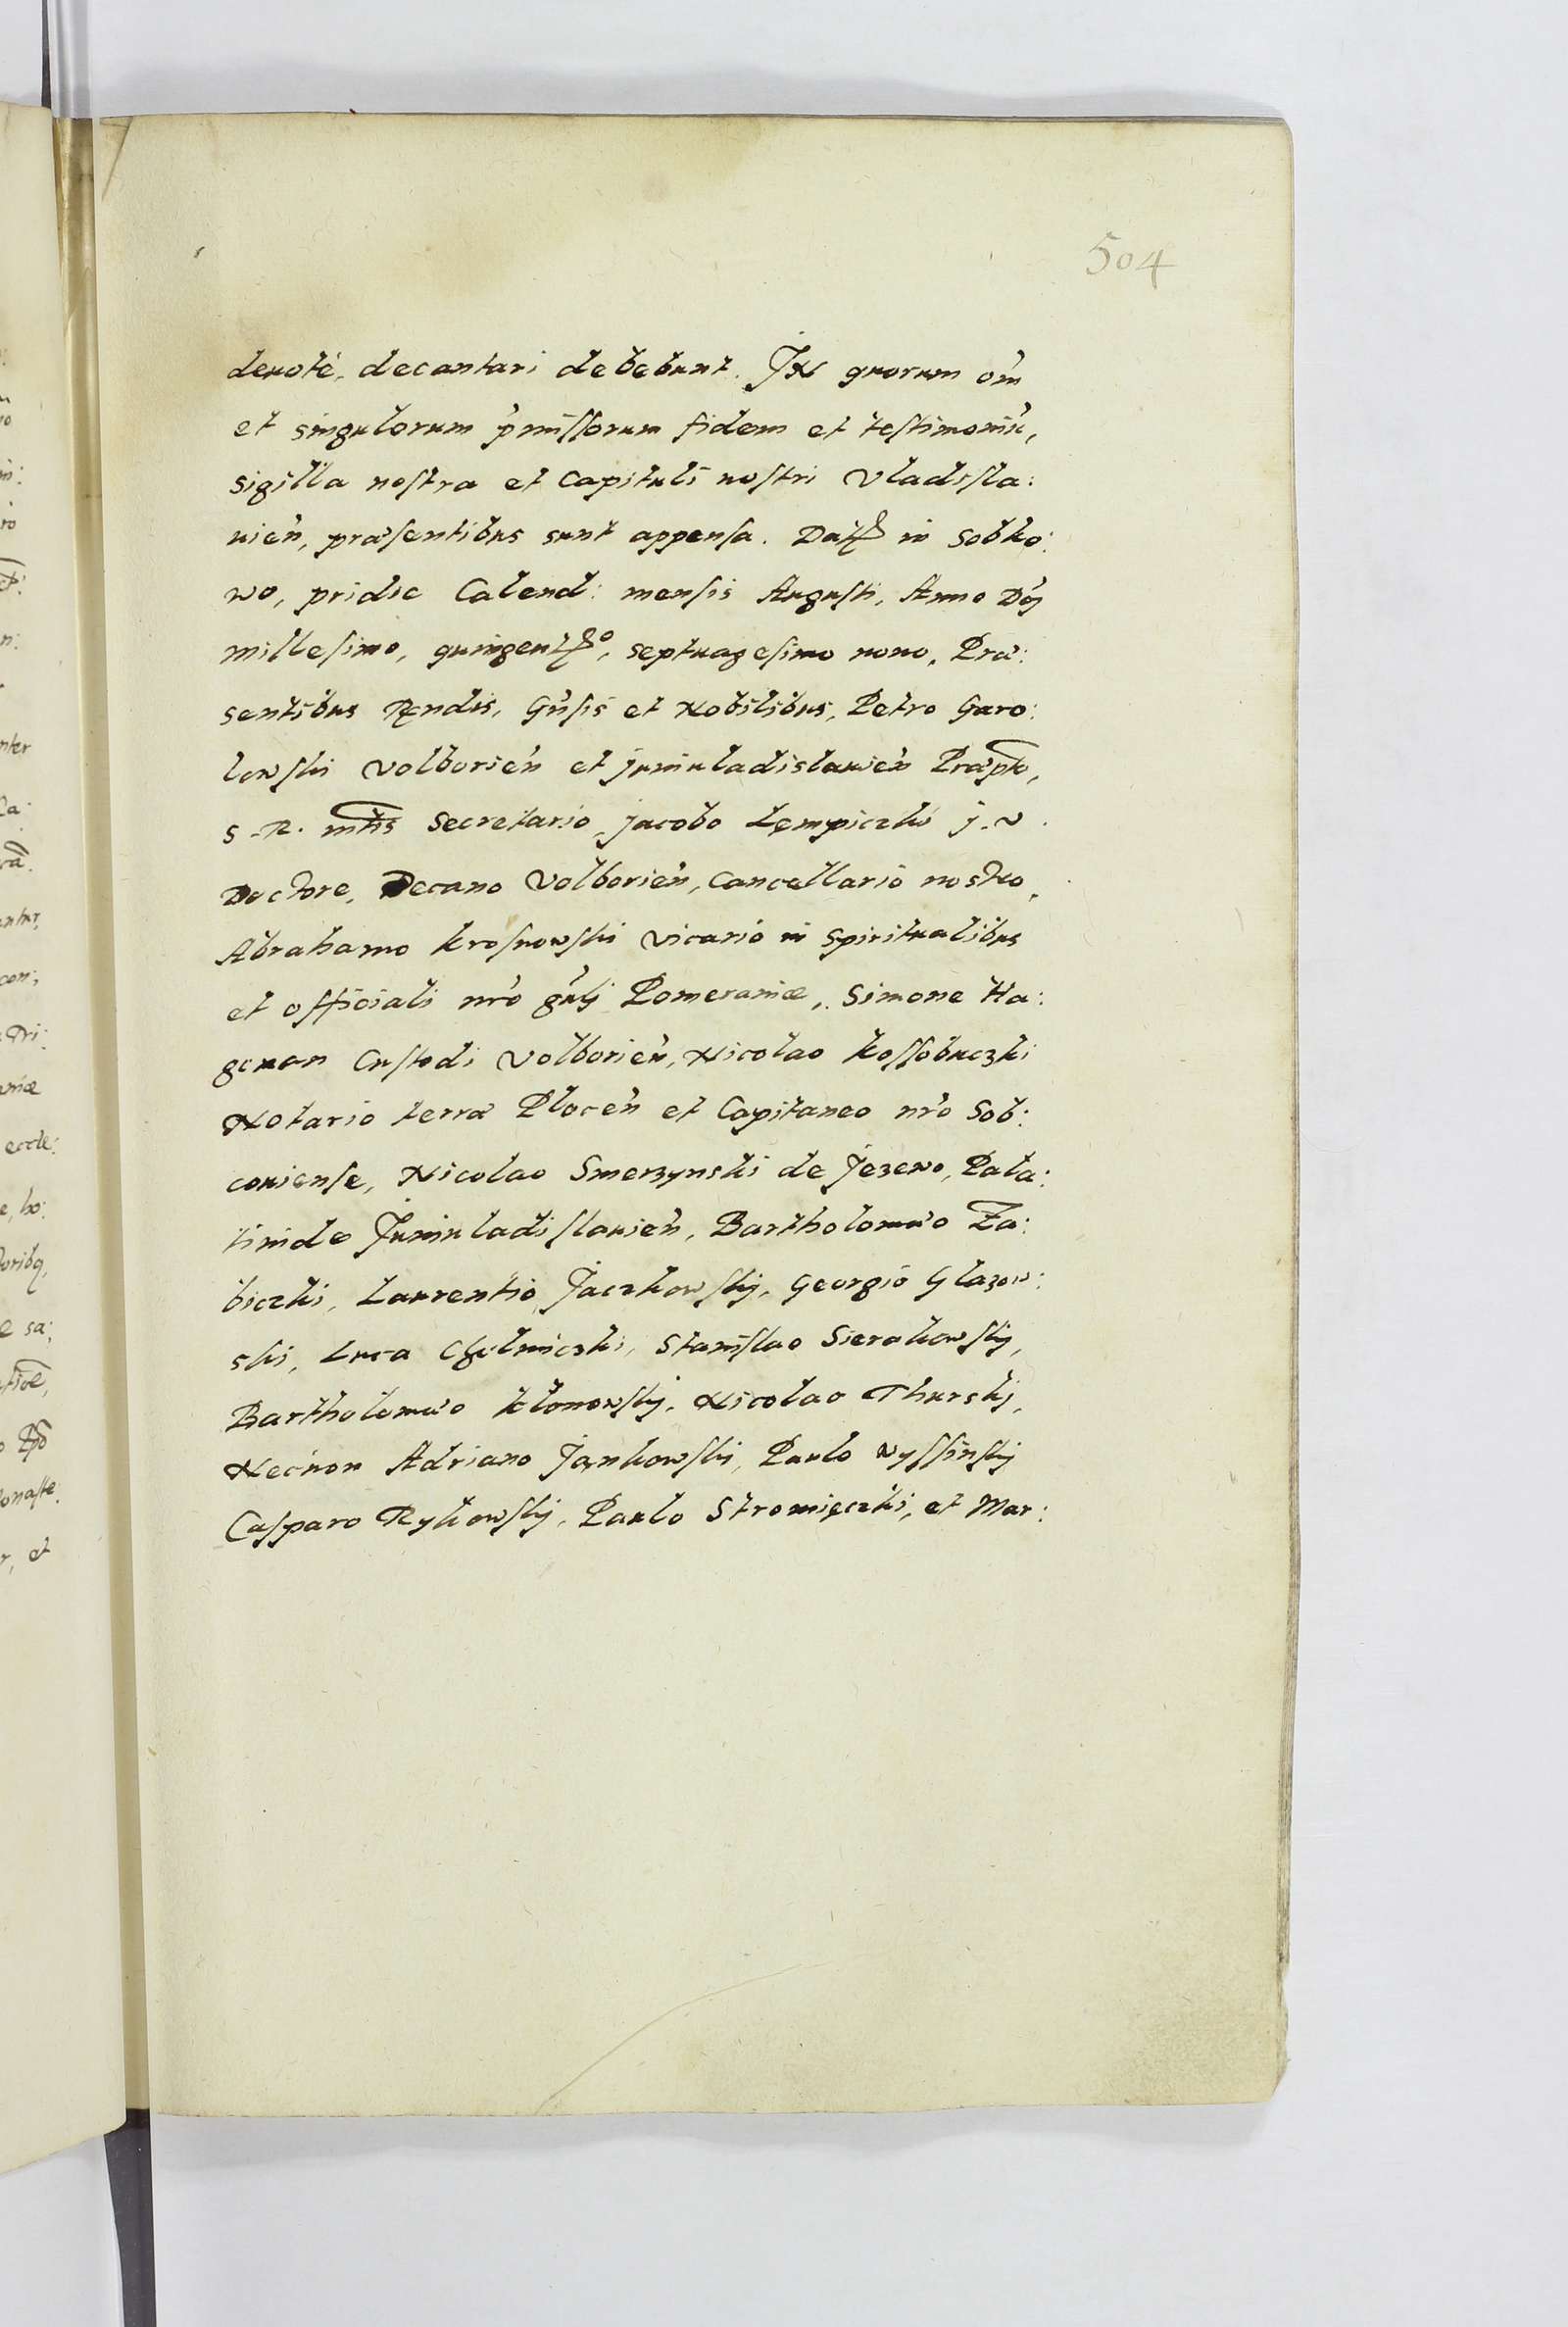 504
deuotè, decantari debebunt. IN quorum om̃
et singulorum p̃missorum fidem et testimoniũ,
sigilla nostra et Capituli nostri Vladisla:
uieñ, præsentibus sunt appensa. Dat in Sobko:
wo, pridie Calend: mensis Augusti, Anno Dñj
millesimo, quingent°, septuagesimo nono, Præ:
sentibus Rendis, Gñsis et Nobilibus, Petro Garo:
lewski Volborieñ et Juniuladislauieñ Præpto,
S. R. mtis Secretario, Jacobo Lempiczki J. V.
Doctore, Decano Volborieñ, Cancellario nostro,
Abrahamo Krosnowski Vicario in Spiritualibus
et officiali nr̃o gñlj Pomeraniæ, Simone Ha:
geman Custodi Volborieñ, Nicolao Kossobuczki
Notario terræ Ploceñ et Capitaneo nr̃o Sob:
couiense, Nicolao Smerzynski de Jezewo, Pala:
tinide Juniuladislauieñ, Bartholomæo Za:
biczki, Laurentio Jaczkowskj, Georgio Glazow:
ski, Luca Chelmiczki, Stanislao Sierakowskj,
Bartholomæo Klonowskj, Nicolao Thurskj,
Necnon Adriano Jankowski, Paulo Wyssinskj
Casparo Rykowskj, Paulo Stromięczki, et Mar:
nter
ecde:
e, ho:
e sa:
r, et